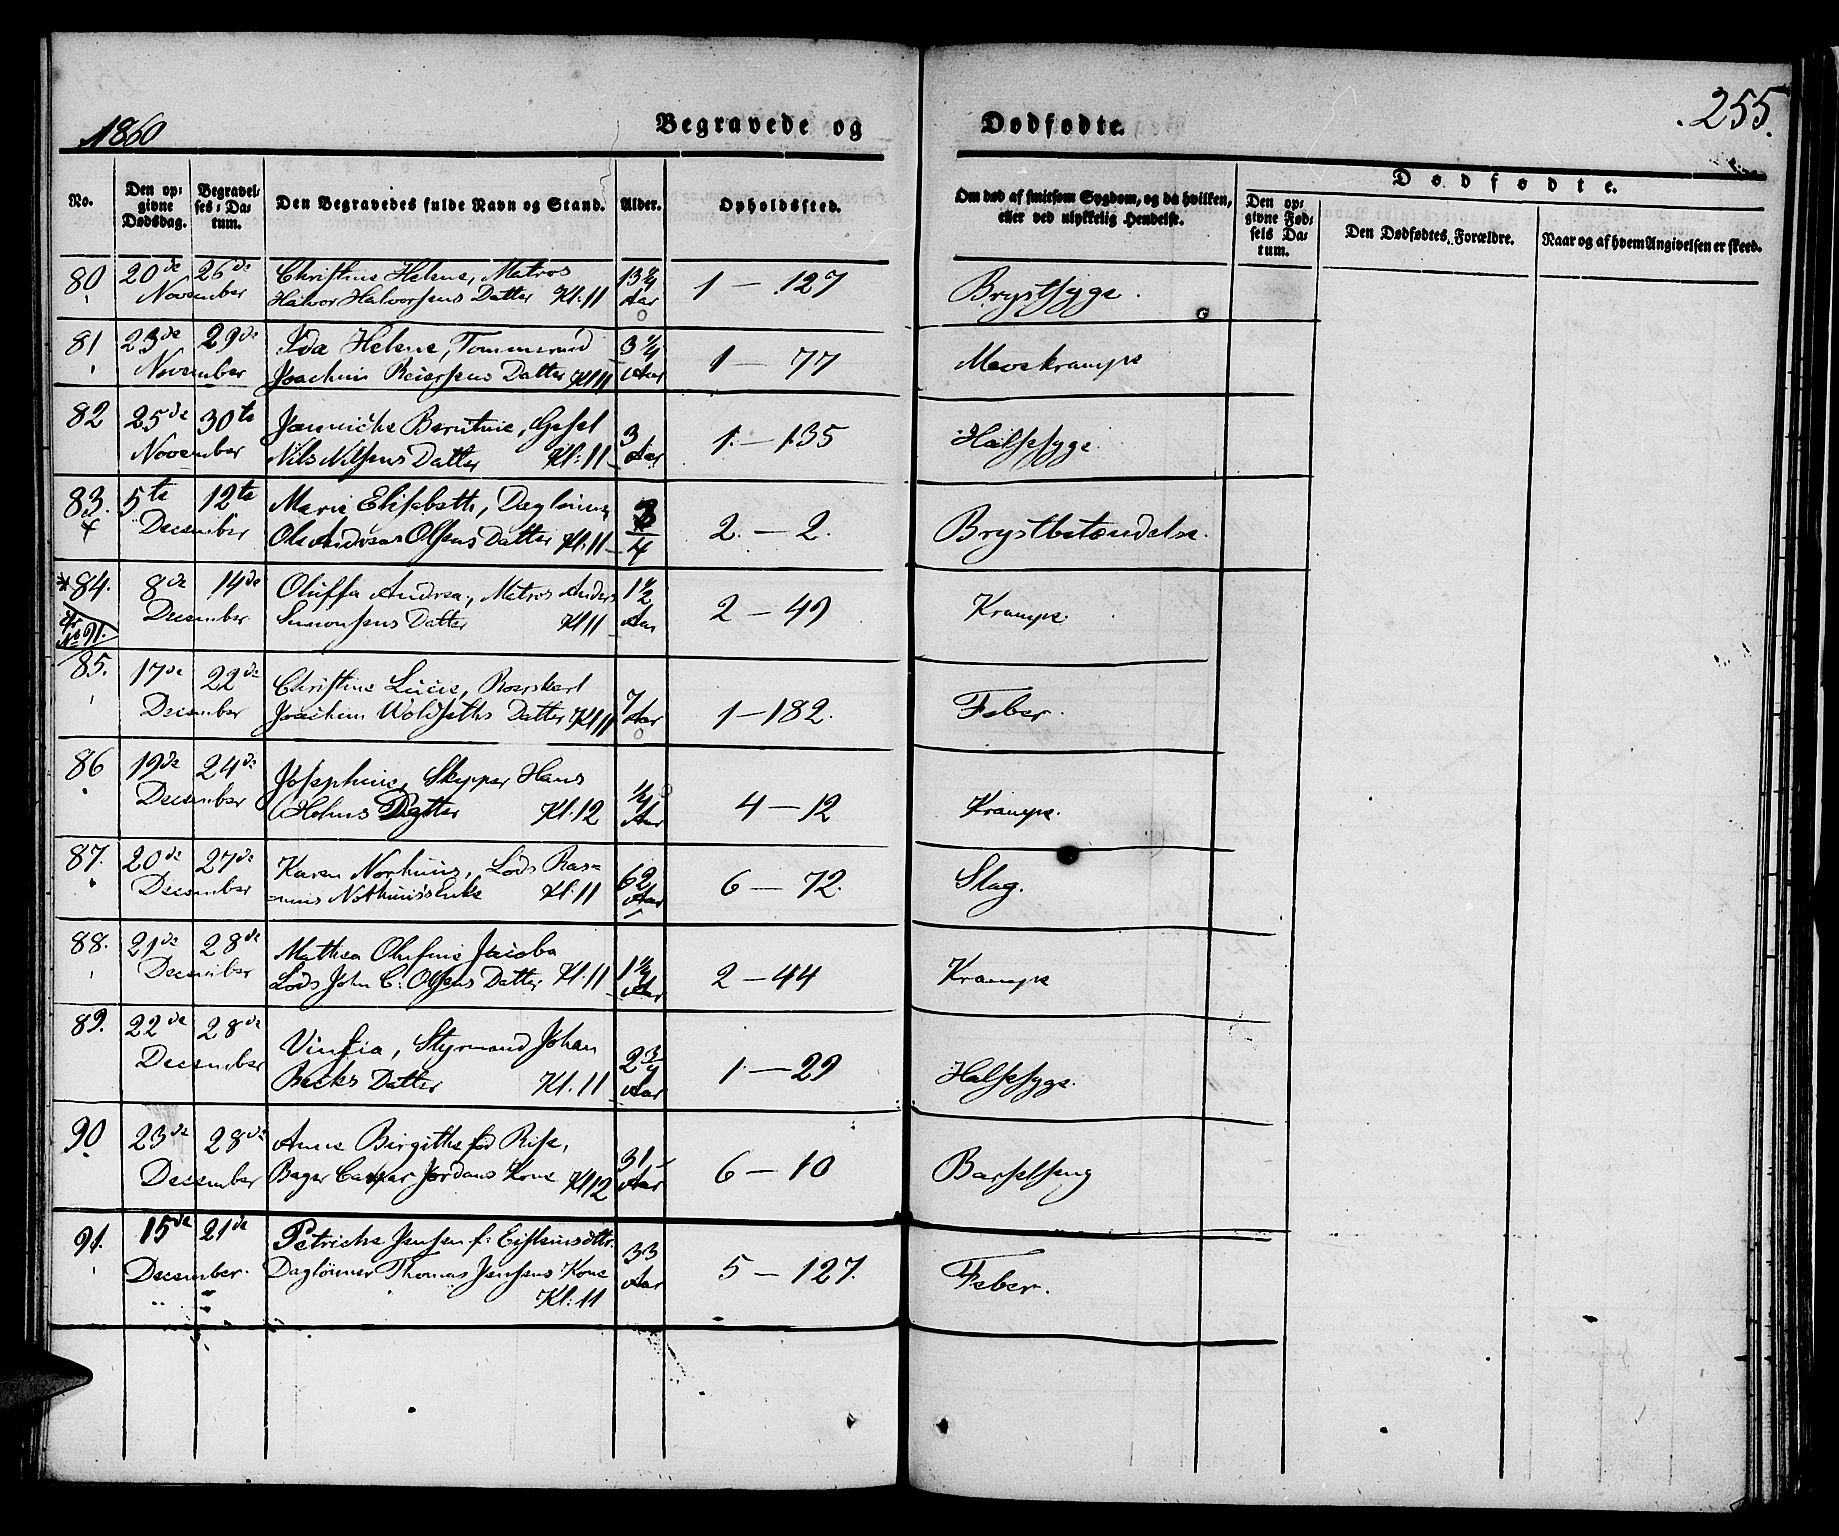 1860
Begravede og Dødfødte.
255.
No.
Den opgivne Dødsdag.
Begravelses-Datum.
Den Begravedes fulde Navn og Stand.
Alder.
Opholdssted.
Om død af smitsom Sygdom, og da hvilken, eller ved ulykkelig Hendelse.
Dødfødte.
Den opgivne Fødsels Datum.
Den Dødfødtes Forældre.
Naar og af hvem Angivelsen er skeed.
80 20de 26de Christine Helene, Matros 13 1/4
November Halvor Halvorsens Datter Kl. 11 Aar 1 — 127 Brystsyge.
81 23de 29de Ida Helene, Tømmermd 3 1/4
November Joachim Reiersens Datter Kl 11 Aar 1 — 77 Mavekrampe
82 25de 30te Jannicke Berntine, Gesel 3
November Nils Nilsens Datter Kl: 11 Aar 1. — 135 Halssyge.
83. 5te 12te Marie Elisabeth, Daglønner 3/4
December Ole Andreas Olsens Datter Kl. 11 2. — 2. Brystbetændelse.
84. 8de 14de Oluffa Andrea, Matros Anders 1 1/2
December Simonsens Datter Kl 11 Aar 2 — 49 Krampe.
cfr No 91.
85. 17de 22de Christine Lucie, Roerskarl 7
December Joachim Woldseths Datter Kl 11 Aar 1 — 182. Feber.
86 19de 24de Josephine, Skipper Hans 1/4
December Holms Datter Kl. 12 Aar 4 — 12 Krampe.
87. 20de 27de Karen Northuus, Lods Ras= 62
December =mus Northuus's Enke Kl: 11 Aar 6 — 72. Slag.
88. 21de 28de Mathea Olufine Jacoba 1 1/4
December Lods John C. Olsens Datter Kl. 11 Aar 2 — 44 Krampe
89. 22de 28de Styrmand Johan 2 3/4
December Becks Datter Kl. 11 Aar 1. — 29 Halssyge.
90 23de 28de Anne Birgithe fød Rise, 31
December Bager Casper Jordans Kone Kl 12 Aar 6 — 10 Barselseng
91. 15de 21de Petriche Jensen f. Eistensdttr. 33
December. Dagtønner Thomas Jensens Kone Aar 5 — 127. Feber.
Kl: 11